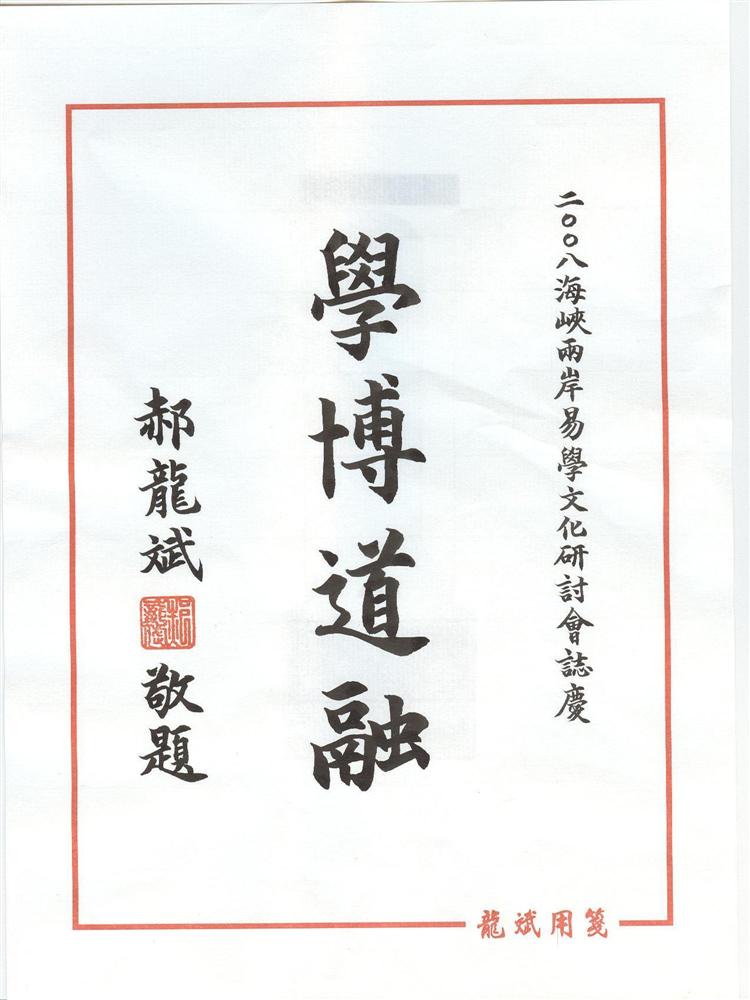 二○○八海峽兩岸易學文化研討會誌慶
學博道融
郝龍斌
敬題
龍斌用箋